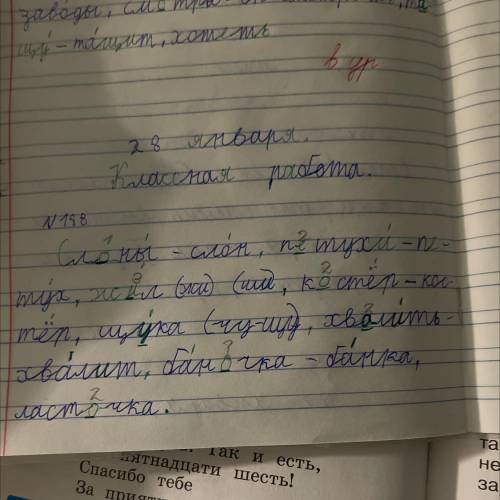 заводы, смотры
щу́ - та́щит, хотеть
в ур
28 января.
Классная работа.
N 188
Слоны́ - сло́н, петухи́ - пе-
ту́х, жил (жи) (ши), костёр - кос-
тёр, щука (чу-щу), хвали́ть -
хва́лит, ба́ночка - ба́нка,
ласточка.
Так и есть,
пятнадцати шесть!
Спасибо тебе
За прият
та
не
за